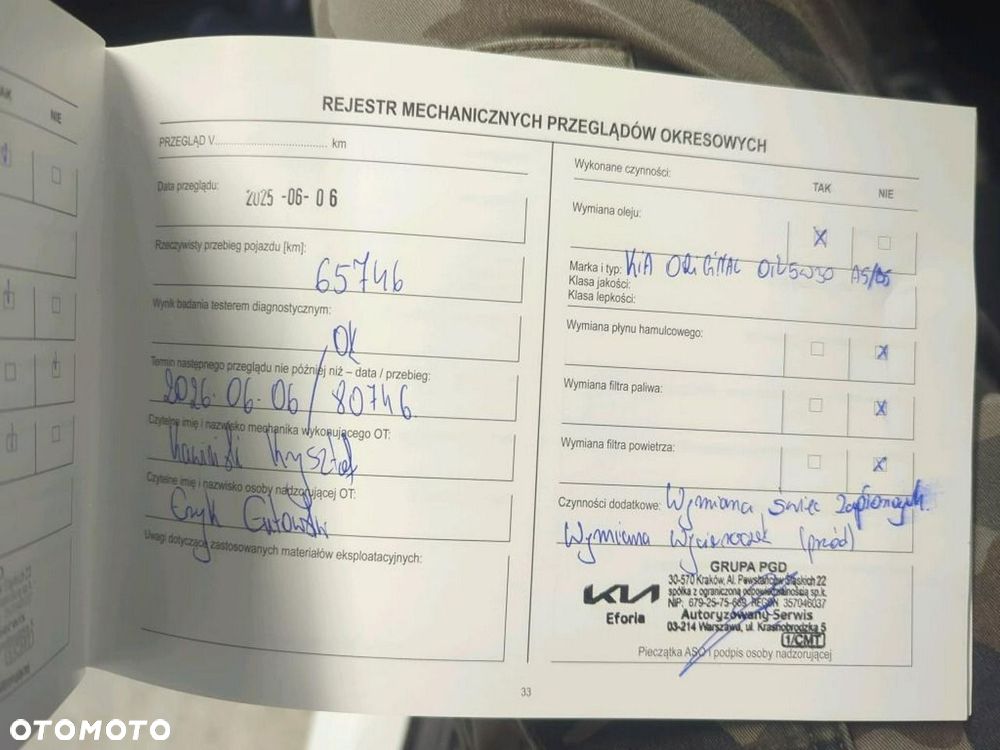 AK
NIE
REJESTR MECHANICZNYCH PRZEGLĄDÓW OKRESOWYCH
PRZEGLĄD V................................. km
Data przeglądu:
2025 -06- 06
Rzeczywisty przebieg pojazdu [km]:
65746
Wynik badania testerem diagnostycznym:
OK
Termin następnego przeglądu nie później niż – data / przebieg:
2026.06.06 / 80746
Czytelne imię i nazwisko mechanika wykonującego OT:
Czytelne imię i nazwisko osoby nadzorującej OT:
Eryk Gutowski
Uwagi dotyczące zastosowanych materiałów eksploatacyjnych:
Wykonane czynności:
TAK
NIE
Wymiana oleju:
X
Marka i typ: KIA ORIGINAL OIL 5W30
Klasa jakości:
Klasa lepkości:
Wymiana płynu hamulcowego:
X
Wymiana filtra paliwa:
X
Wymiana filtra powietrza:
X
Czynności dodatkowe: Wymiana świec zapłonowych.
Wymiana Wycieraczek (przód)
GRUPA PGD
30-570 Kraków, Al. Powstańców Śląskich 22
spółka z ograniczoną odpowiedzialnością sp.k.
REGON 357046037
KIA
Eforia
Autoryzowany Serwis
03-214 Warszawa, ul. Krasnobrodzka 5
1/CMT
Pieczątka ASO i podpis osoby nadzorującej
33
OTOMOTO